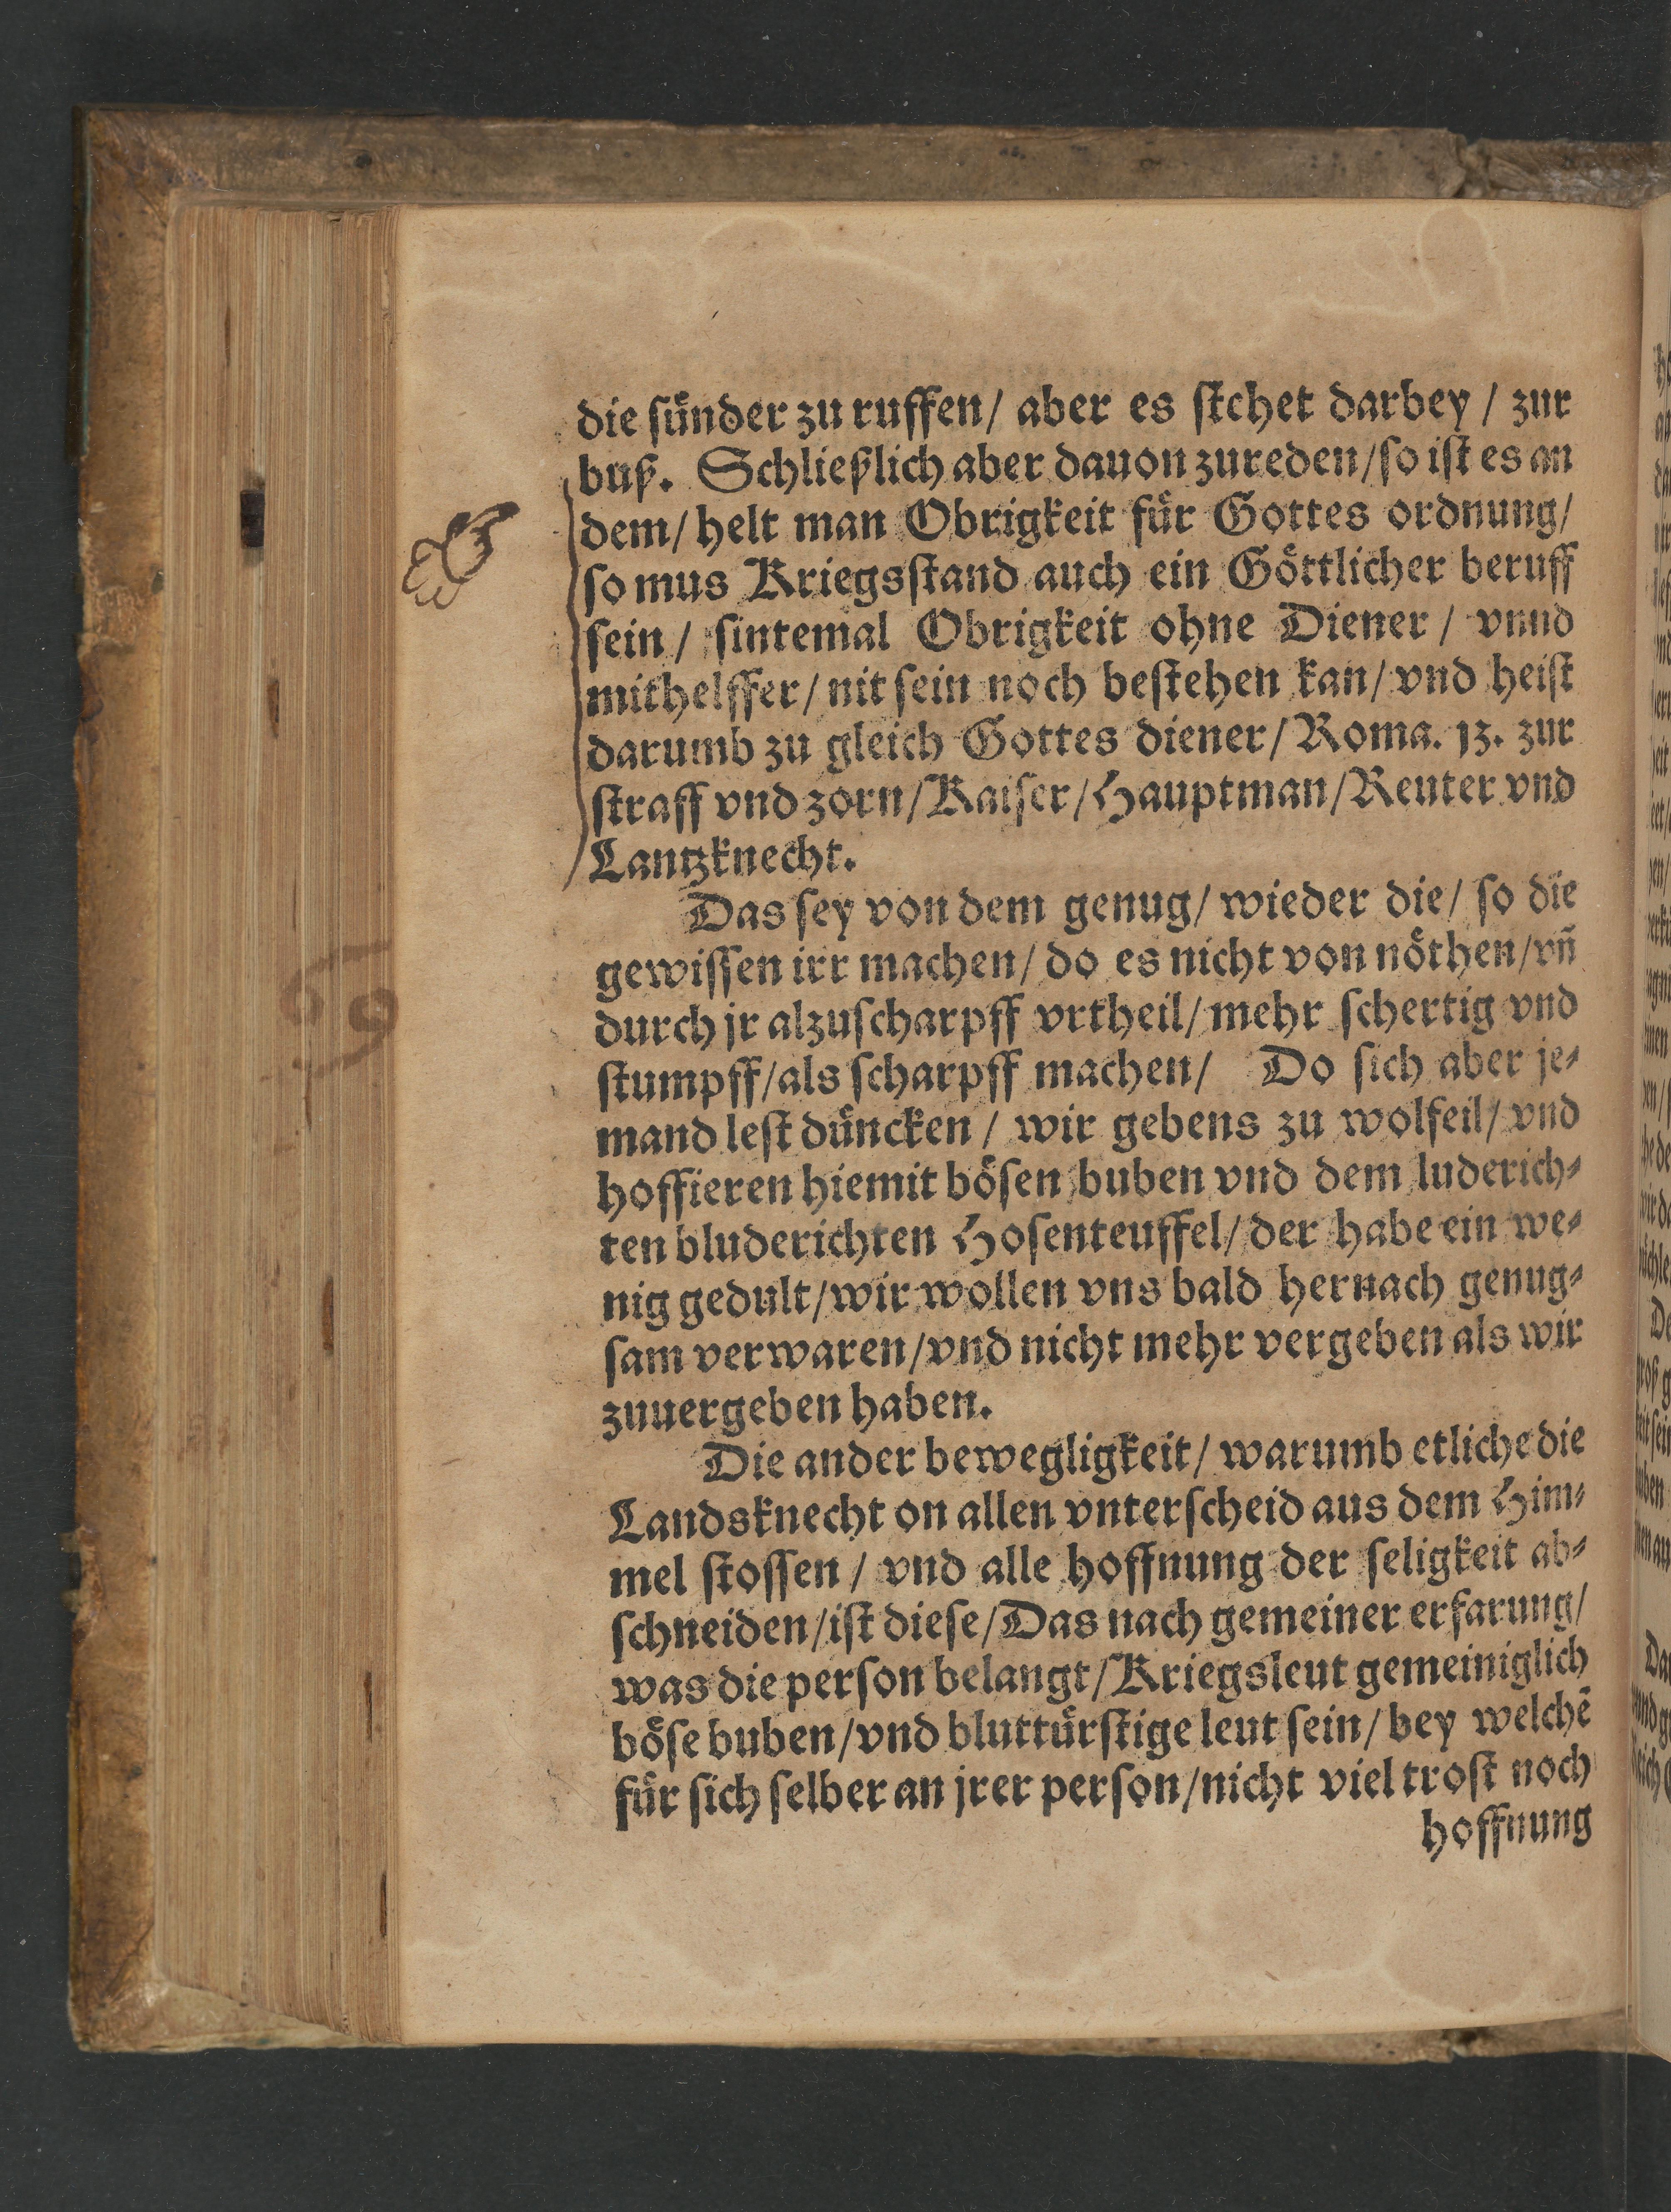 die sünder zu ruffen/ aber es stehet darbey / zur
buß. Schließlich aber dauon zureden/so ist es an
dem/ helt man Obrigkeit für Gottes ordnung/
so mus Kriegsstand auch ein Göttlicher beruff
sein / sintemal Obrigkeit ohne Diener / vnnd
mithelffer/ nit sein noch bestehen kan/ vnd heist
darumb zu gleich Gottes diener/ Roma. 13. zur
straff vnd zorn/Kaiser/Hauptman/Reuter vnd
Lantzknecht.
Das sey von dem genug/ wieder die/ so die
gewissen irr machen/ do es nicht von nöthen/vñ
durch jr alzuscharpff vrtheil/ mehr schertig vnd
stumpff/als scharpff machen/ Do sich aber je⸗
mand lest düncken / wir gebens zu wolfeil/ vnd
hoffieren hiemit bösen buben vnd dem luderich⸗
ten bluderichten Hosenteuffel/ der habe ein we⸗
nig gedult/wir wollen vns bald hernach genug⸗
sam verwaren/vnd nicht mehr vergeben als wir
zuuergeben haben.
Die ander bewegligkeit/ warumb etliche die
Landsknecht on allen vnterscheid aus dem Him⸗
mel stossen / vnd alle hoffnung der seligkeit ab⸗
schneiden/ist diese/Das nach gemeiner erfarung/
was die person belangt/Kriegsleut gemeiniglich
böse buben/vnd bluttürstige leut sein/ bey welchē
für sich selber an jrer person/nicht viel trost noch
hoffnung